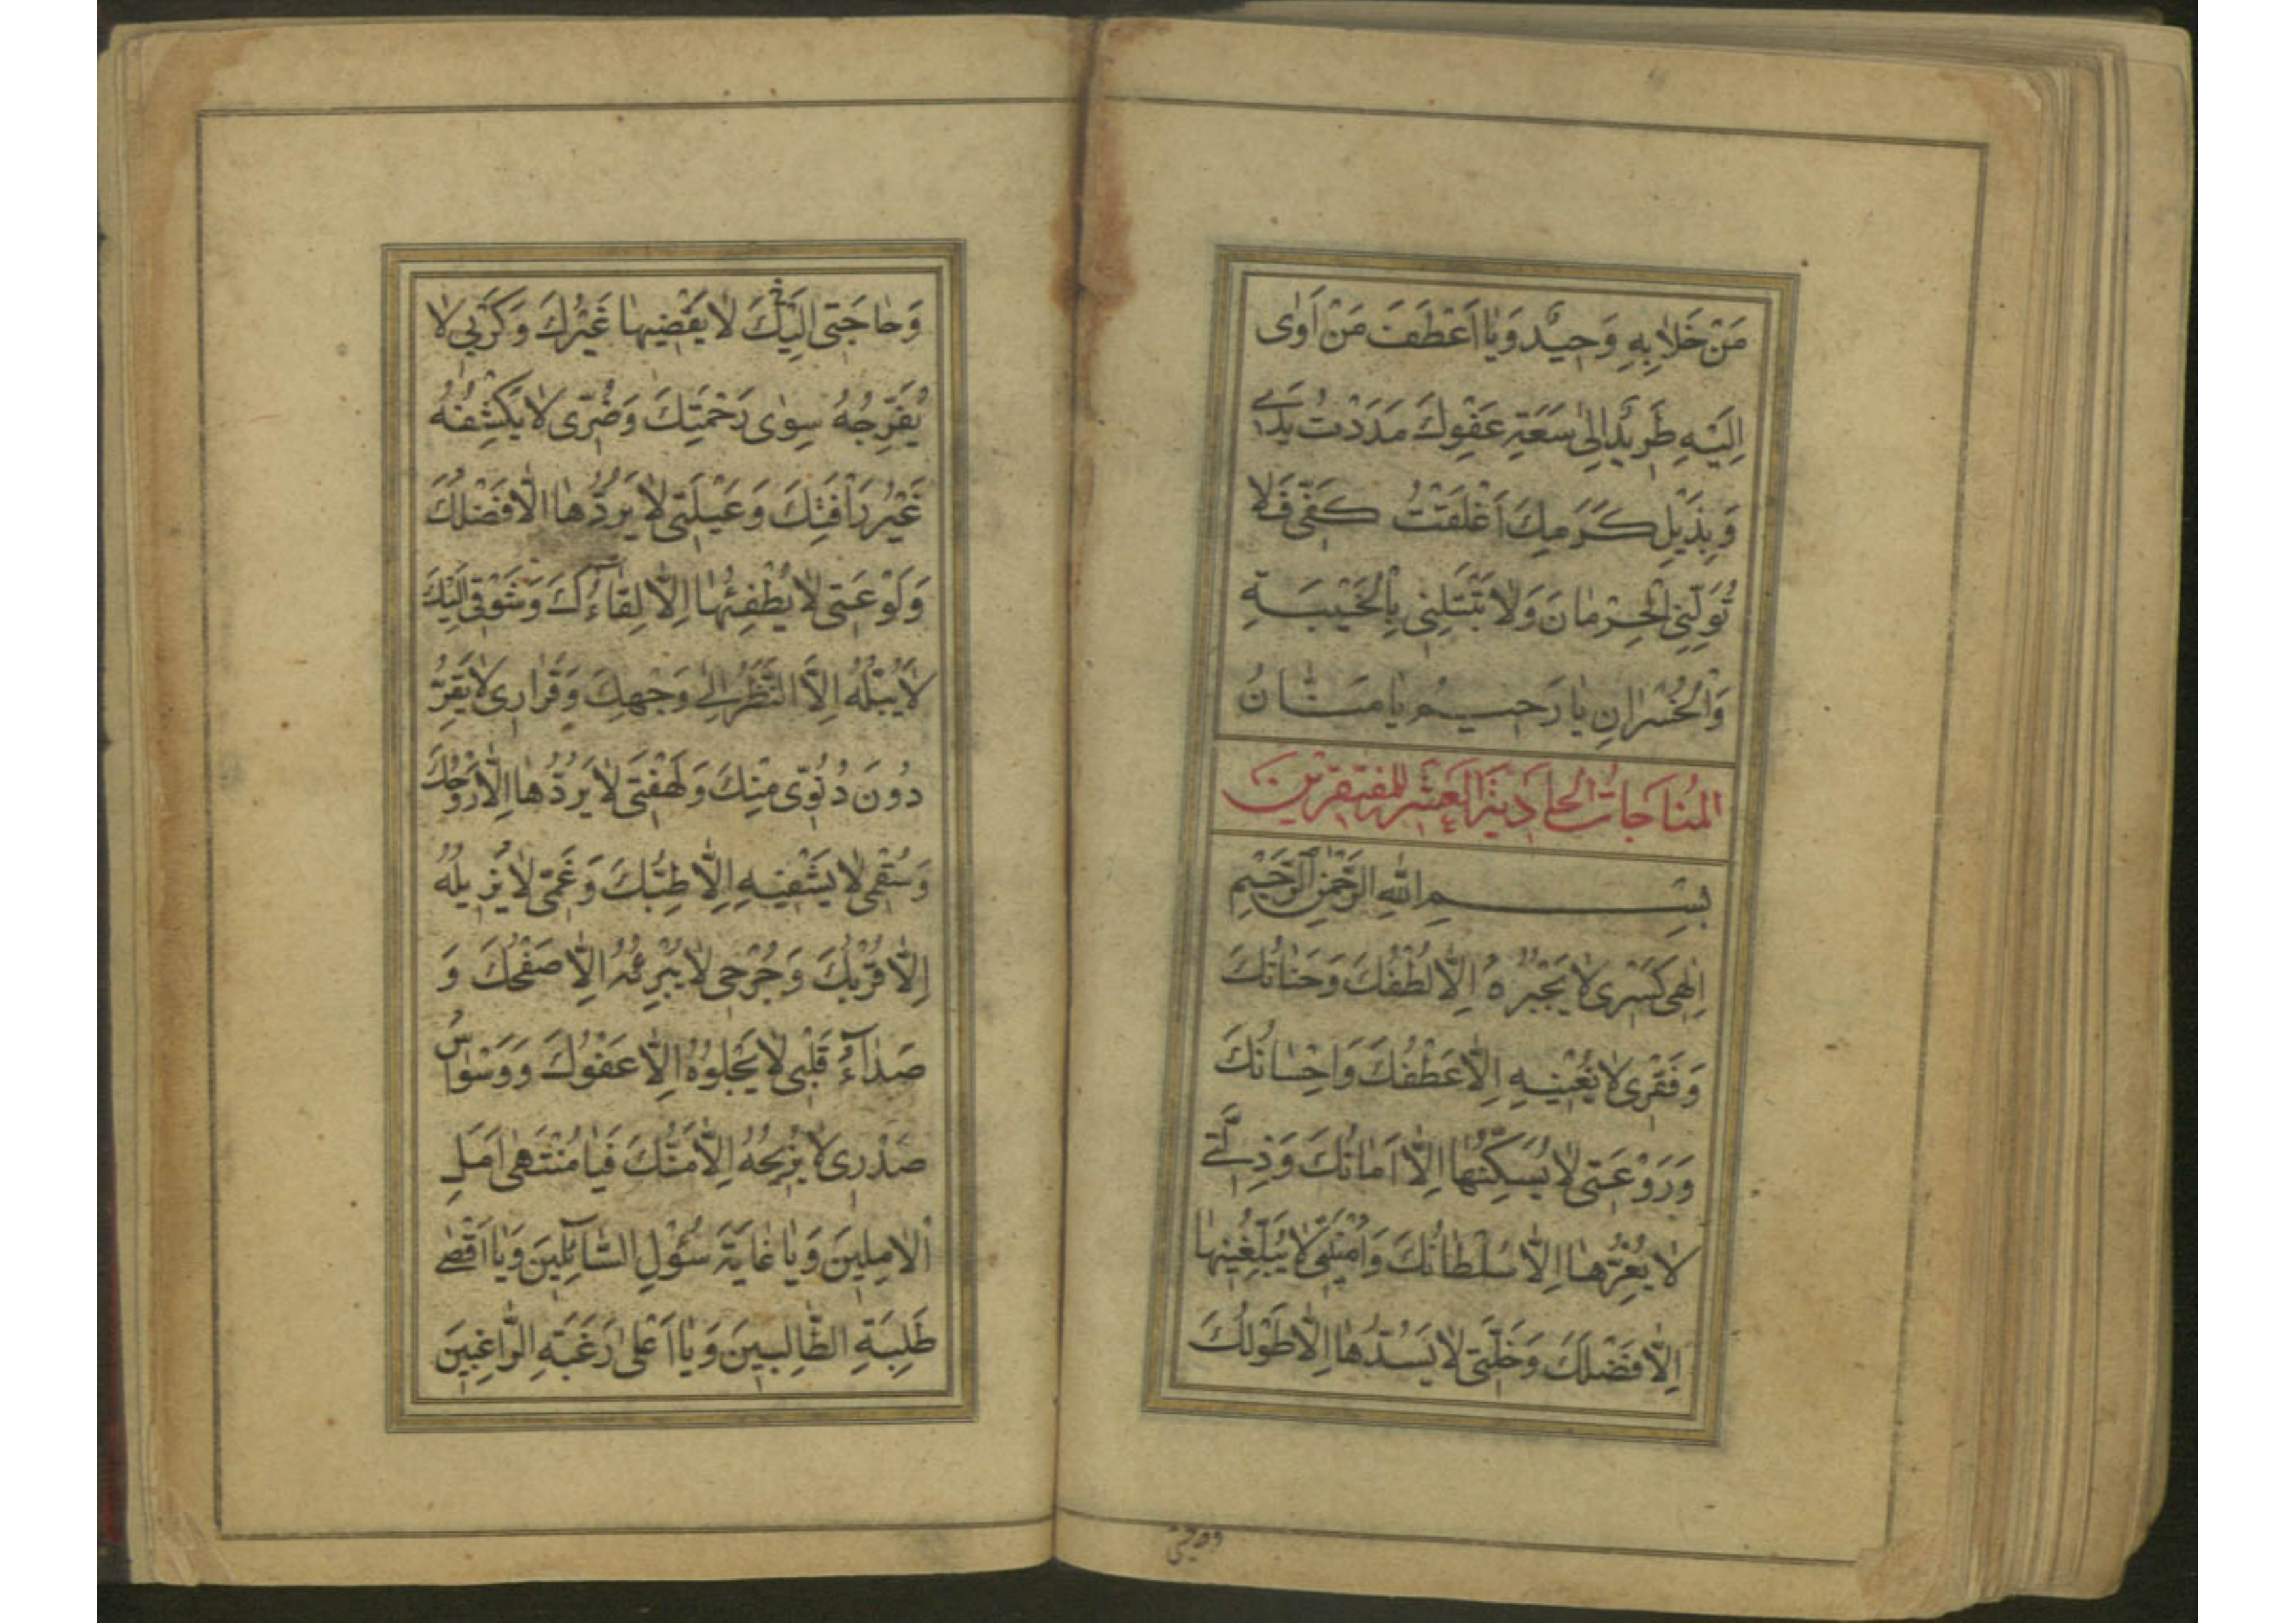 مَنْ خَلَا بِهِ وَحِيدٌ وَيَا اَعْطَفَ مَنْ اَوٰى
اِلَيْهِ طَرِيدٌ اِلٰى سَعَةِ عَفْوِكَ مَدَدْتُ يَدِى
وَبِذَيْلِ كَرَمِكَ اَعْلَقْتُ كَفّى فَلَا
تُوَلِّنِى الْحِرْمَانَ وَلَا تَبْتَلِنِى بِالْخَيْبَةِ
وَالْخُسْرَانِ يَا رَحِيمُ يَا مَنَّانُ
المُنَاجَاتُ الحادية العشر للمفتقرين
بِسْمِ اللّٰهِ الرَّحْمٰنِ الرَّحِيْمِ
اِلٰهِى كَسْرِى لَا يَجْبُرُهُ اِلَّا لُطْفُكَ وَحَنَانُكَ
وَفَقْرِى لَا يُغْنِيهِ اِلَّا عَطْفُكَ وَاِحْسَانُكَ
وَرَوْعَتِى لَا يُسَكِّنُهَا اِلَّا اَمَانُكَ وَذِلَّتِى
لَا يُعِزُّهَا اِلَّا سُلْطَانُكَ وَاُمْنِيَّتِى لَا يُبَلِّغُنِيهَا
اِلَّا فَضْلُكَ وَخَلَّتِى لَا يَسُدُّهَا اِلَّا طَوْلُكَ
وَحَاجَتِى اِلَيْكَ لَا يَقْضِيهَا غَيْرُكَ وَكَرْبِى لَا
يُفَرِّجُهُ سِوٰى رَحْمَتِكَ وَضُرِّى لَا يَكْشِفُهُ
غَيْرُ رَأْفَتِكَ وَعَيْلَتِى لَا يَرُدُّهَا اِلَّا فَضْلُكَ
وَلَوْعَتِى لَا يُطْفِئُهَا اِلَّا لِقَاۤءُكَ وَشَوْقِى اِلَيْكَ
لَا يَبُلُّهُ اِلَّا النَّظَرُ اِلٰى وَجْهِكَ وَقَرَارِى لَا يَقِرُّ
دُونَ دُنُوِّى مِنْكَ وَلَهْفَتِى لَا يَرُدُّهَا اِلَّا رَوْحُكَ
وَسُقْمِى لَا يَشْفِيهِ اِلَّا طِبُّكَ وَغَمِّى لَا يُزِيلُهُ
اِلَّا قُرْبُكَ وَجُرْحِى لَا يُبْرِئُهُ اِلَّا صَفْحُكَ وَ
صَدَآءُ قَلْبِى لَا يَجْلُوهُ اِلَّا عَفْوُكَ وَوَسْوَاسُ
صَدْرِى لَا يُزِيحُهُ اِلَّا مَنُّكَ فَيَا مُنْتَهٰى اَمَلِ
اْلاٰمِلِينَ وَيَا غَايَةَ سُؤْلِ السَّآئِلِينَ وَيَا اَقْصٰى
طَلِبَةِ الطَّالِبِينَ وَيَا اَعْلٰى رَغْبَةِ الرَّاغِبِينَ